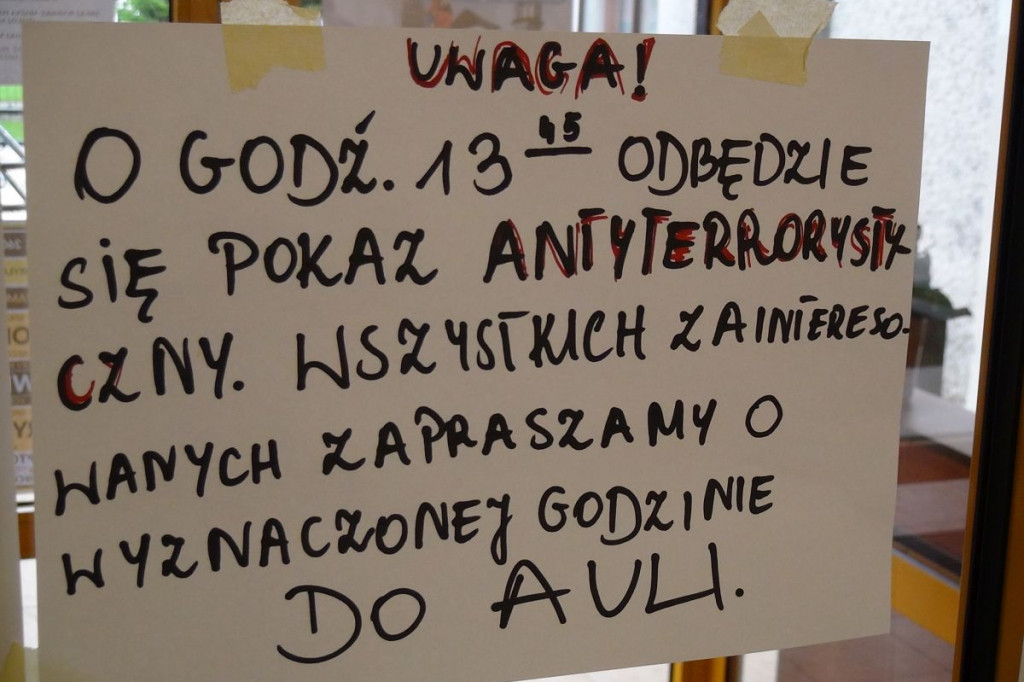 UWAGA!
O GODŹ. 13 45 ODBĘDZIE
SIĘ POKAZ ANTYTERRORYSTY
CZNY. WSZYSTKICH ZAINTERESO-
WANYCH ZAPRASZAMY O
WYZNACZONEJ GODZINIE
DO AULI.